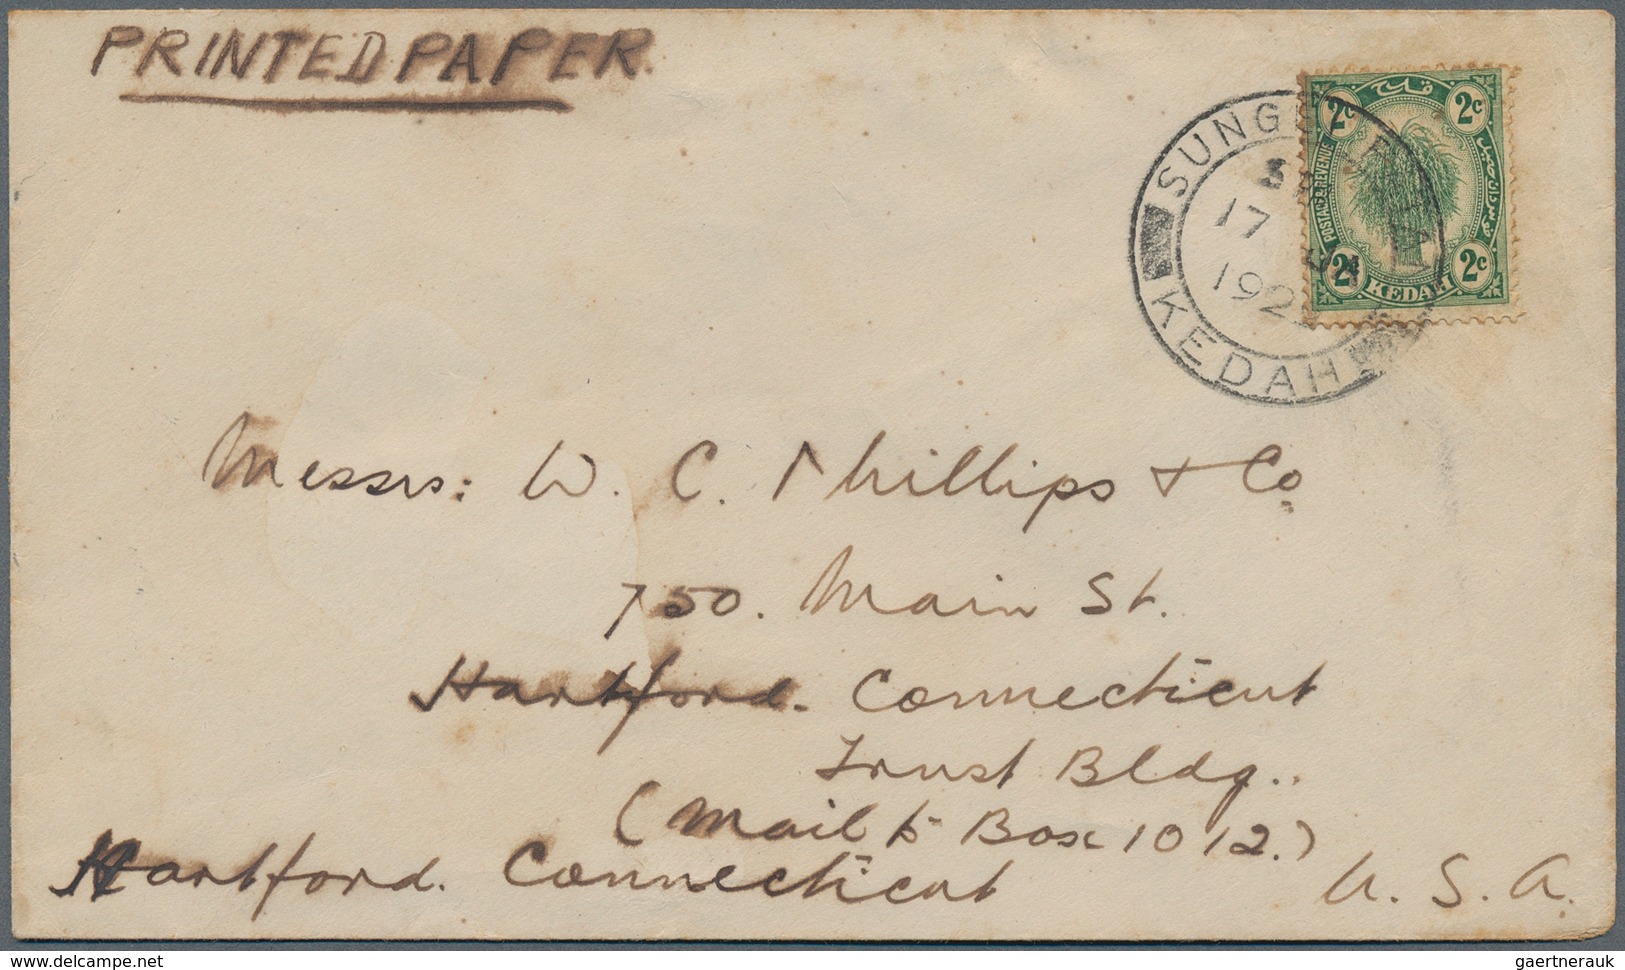 PRINTED PAPER.
قدح
2c 2c
POSTAGE & REVENUE
2c 2c
KEDAH
SUNGEI
17
192
KEDAH
Messrs: W. C. Phillips & Co.
750. Main St.
Hartford. Connecticut
Trust Bldg..
(Mail to Box 1012.)
Hartford. Connecticut U. S. A.
delcampe.net
gaertnerauk